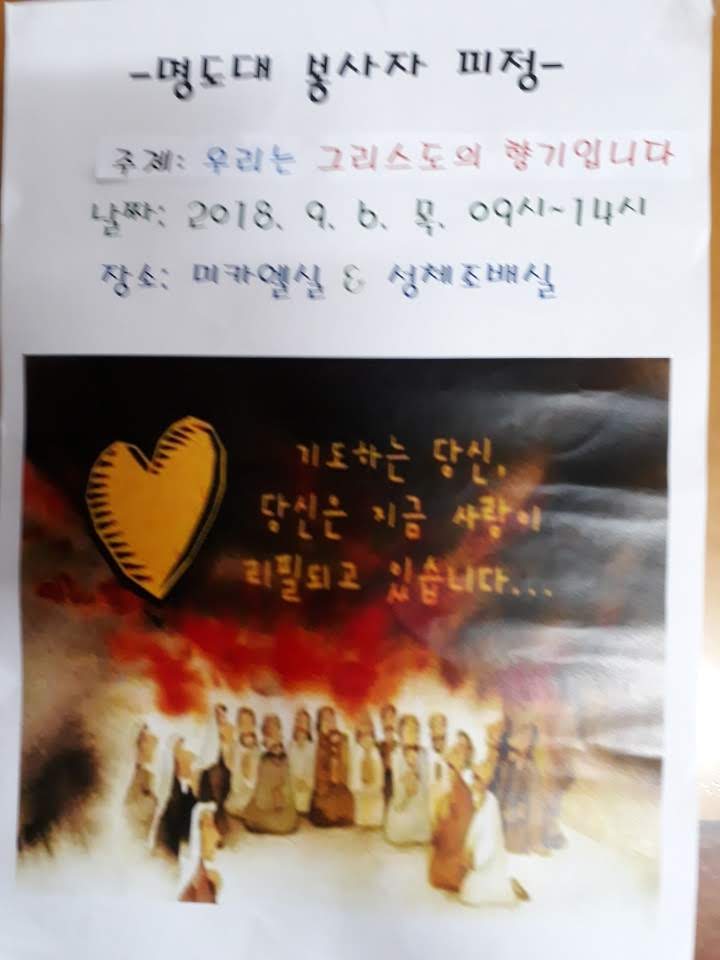 -명도대 봉사자 피정-
주제: 우리는 그리스도의 향기입니다
날짜: 2018. 9. 6. 목. 09시~14시
장소: 미카엘실 & 성체조배실
기도하는 당신,
당신은 지금 사랑이
리필되고 있습니다...